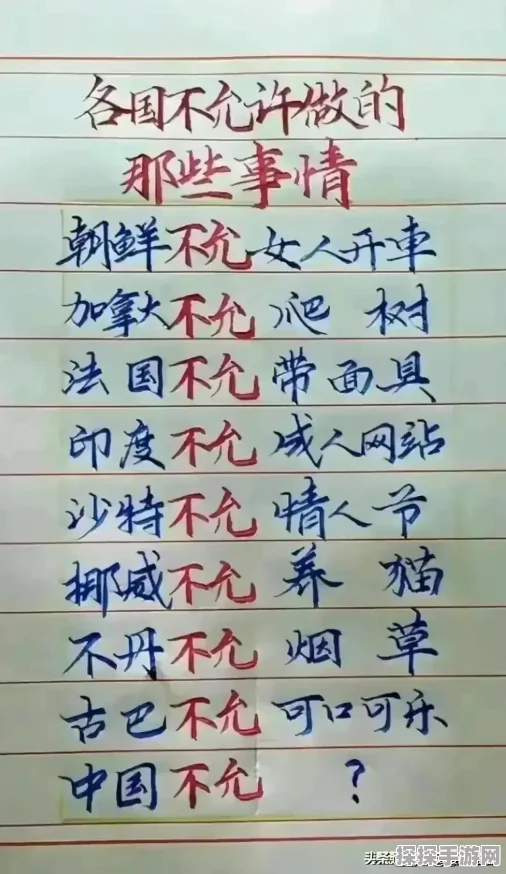 各国不允许做的
那些事情
朝鲜不允女人开車
加拿大不允爬树
法国不允带面具
印度不允成人网站
沙特不允情人节
挪威不允养猫
不丹不允烟草
古巴不允可口可乐
中国不允?
头条
探探手游网